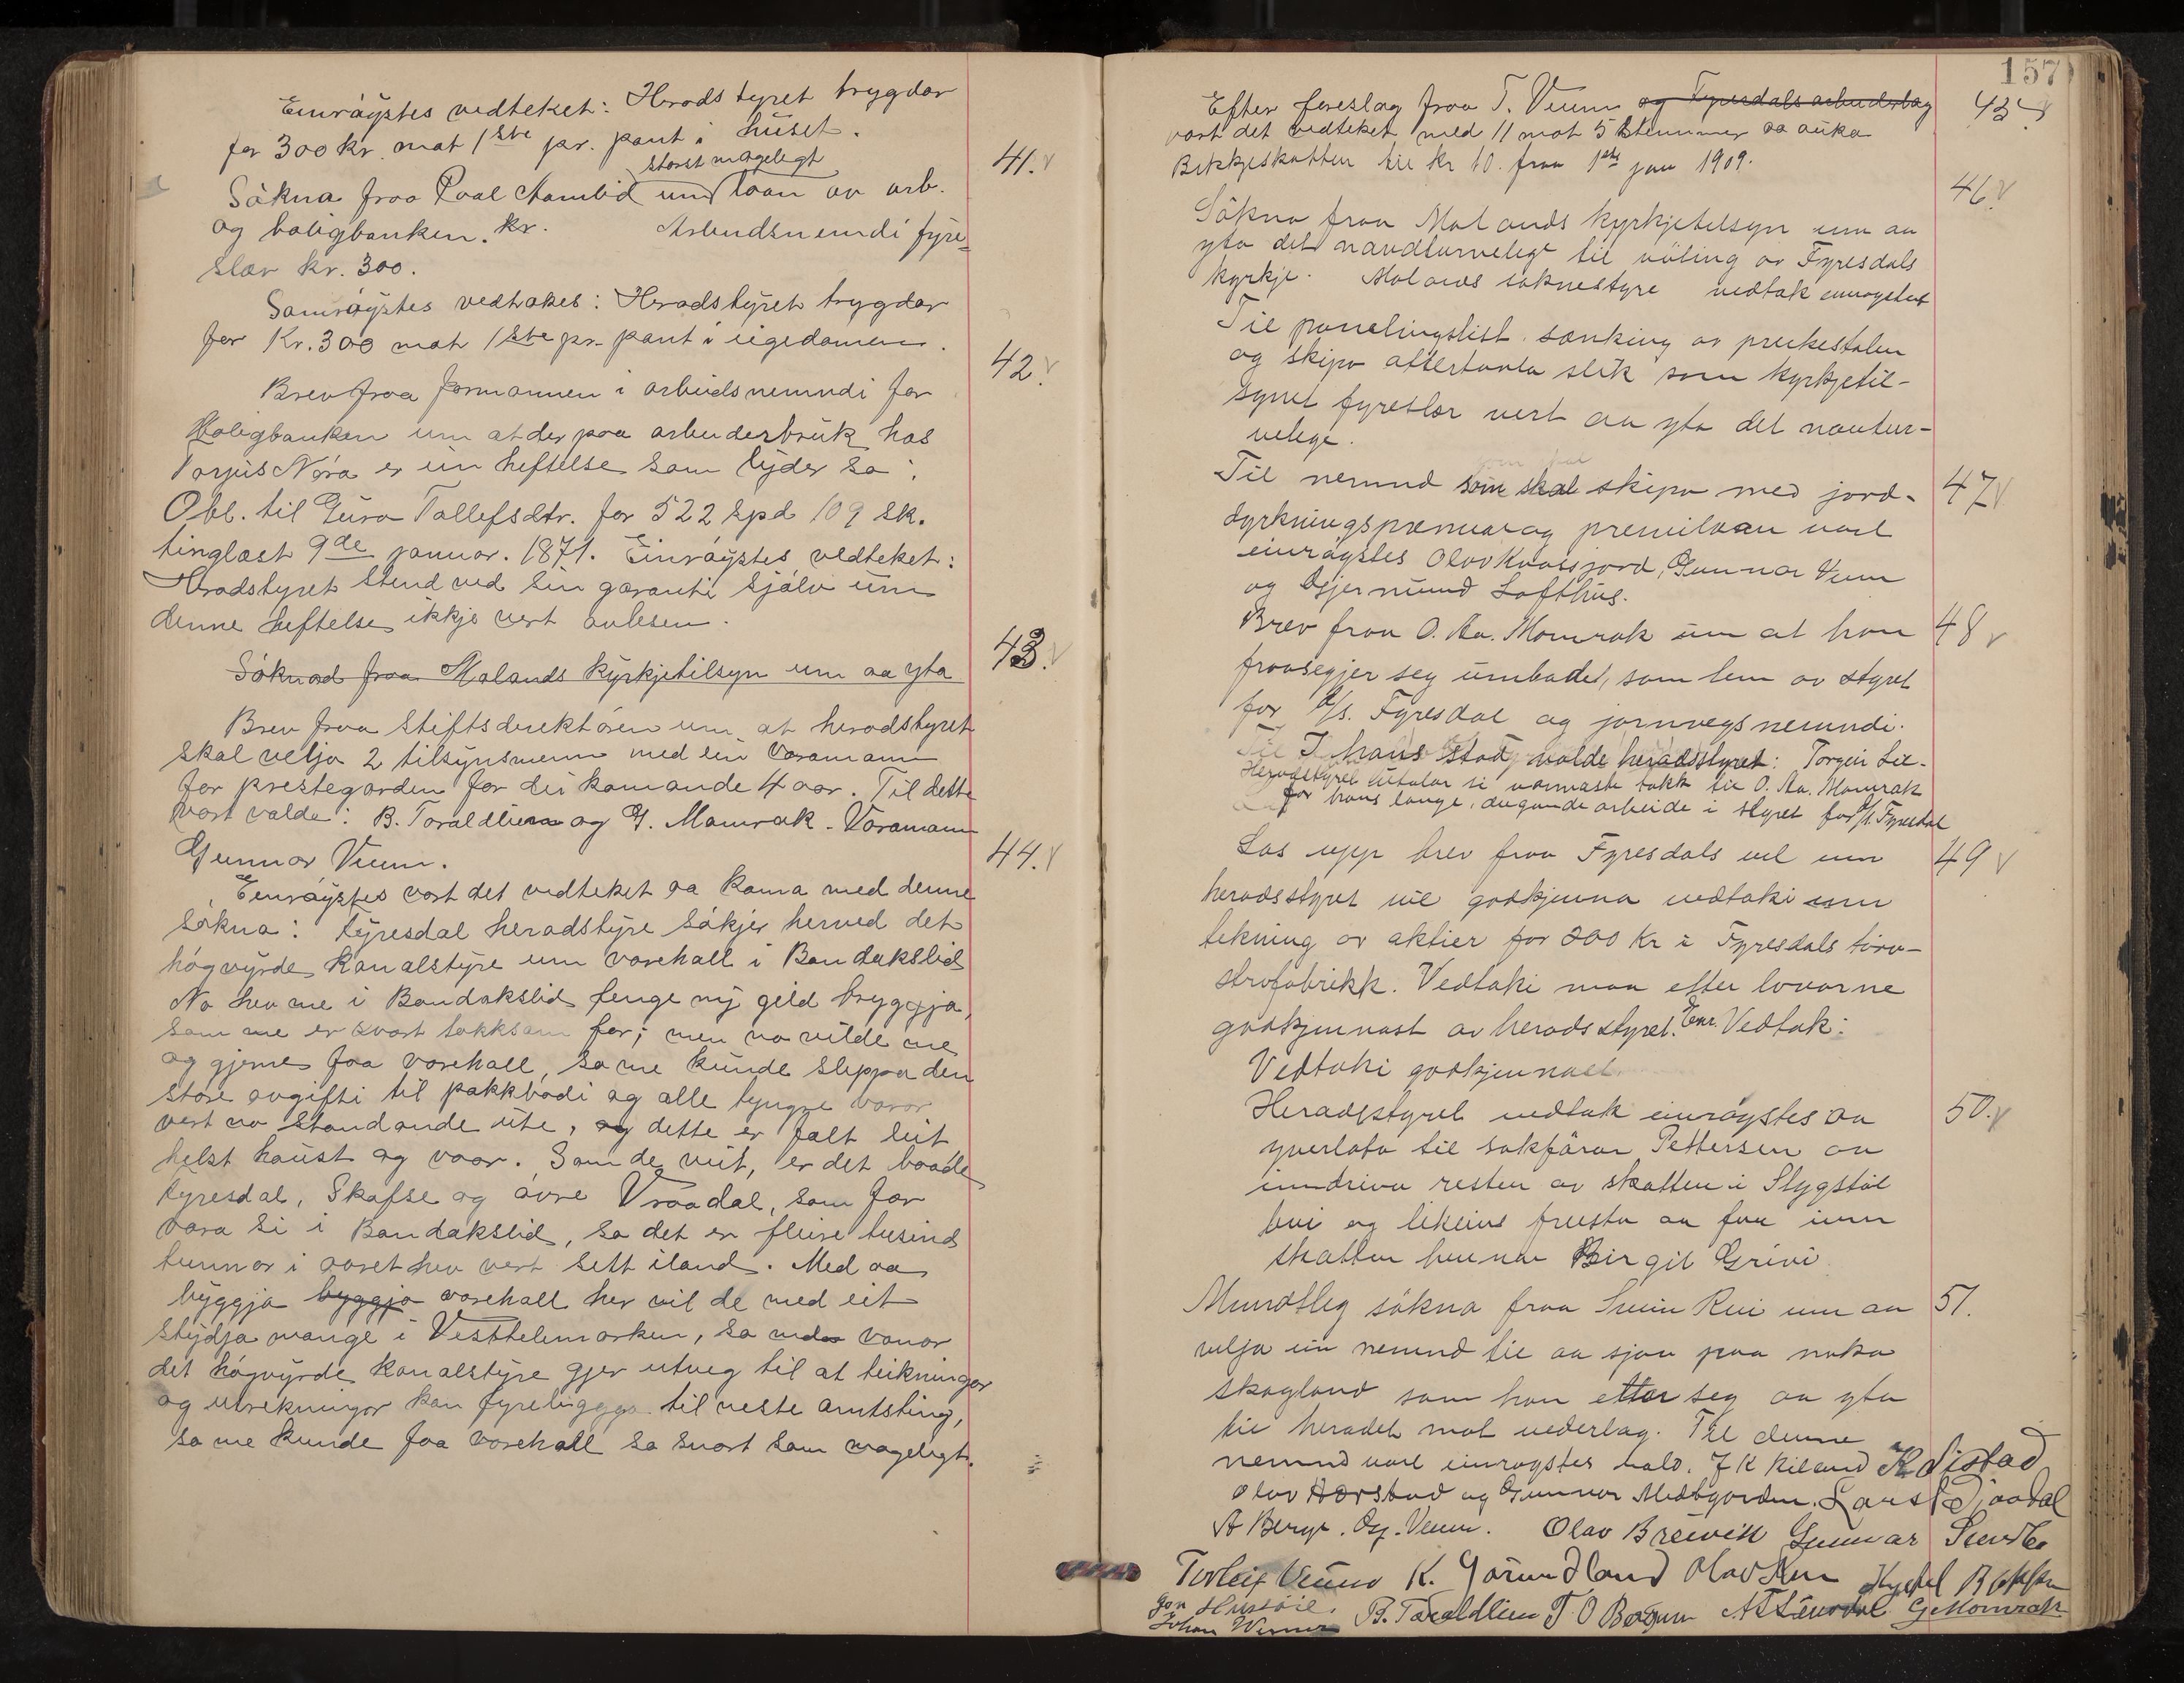 Einrøystes vedteket: Heradstyret trygdar
for 300 kr. mot 1ste pr. pant i huset.
41.
størst mogelegt
Søkna fraa Paal Aamlid um laan av arb.
og boligbanken. kr. Arbeidsnemndi fyre-
slær kr. 300.
Samrøystes vedtakes: Heradstyret trygdar
for Kr. 300 mot 1ste pr. pant i eigedomen.
42.
Brev fraa formannen i arbeidsnemndi for
Boligbanken um at der paa arbeiderbruk hos
Torjus Nøra er ein heftelse som lyder so:
Obl. til Guro Tallefsdtr. for 522 spd 109 sk.
tinglæst 9de januar. 1871. Einrøystes vedteket:
Heradstyret stend ved sin garanti sjølv um
denne heftelse ikkje vert avlesen.
43.
Søknad fraa Molands kyrkjetilsyn um aa yta
Brev fraa Stiftsdirektøren um at heradstyret
skal velja 2 tilsynsmenn med ein varamann
for prestegarden for dei komande 4 aar. Til dette
vart valde: B. Taraldlien og G. Momrak. Varamann
Gunnar Veum.
44.
Einrøystes vart det vedteket aa koma med denne
søkna: Fyresdal heradstyre søkjer herved det
høgvyrde Kanalstyre um varehall i Bandakslid
No hev me i Bandakslid fenge ny gild bryggja,
som me er svært takksam for; men no vilde me
og gjerne faa varehall, so me kunde sleppa den
store avgifti til pakkbodi og alle tyngre varor
vert no standande ute, og dette er falt leit
helst haust og vaar. Som de veit, er det baade
Fyresdal, Skafse og øvre Vraadal, som fær
vara si i Bandakslid, so det er fleire tusind
tunnor i aaret hev vert sett iland. Med aa
byggja byggja varehall her vil de med eit
stydja mange i Vesttelemarken, so me vonar
det høgvyrde kanalstyre gjer utveg til at teikningar
og utrekningar kan fyreliggja til neste amtsting,
so me kunde faa varehall so snart som mogelegt.
157
Efter fereslag fraa T. Veum og Fyresdals arbeidslag
45
vart det vedteket med 11 mot 5 stemmer aa auka
Bikkjeskatten til kr 10. fraa 1ste jan 1909.
46.
Søkna fraa Molands kyrkjetilsyn um aa
yta det naudturvelegt til vøling av Fyresdals
kyrkje. Molands soknestyre vedtok einrøystes
Til panelingslist. sænking av preikestolen
og skipa altertavla slik som kyrkjetil-
synet fyreslær vert aa yta det nautur-
velege.
Til nemnd som skal skipa med jord-
47
dyrkningspremiar og premilaan vart
einrøystes Olav Kvasjord, Gunnar Veum
og Gjermund Lofthus.
Brev fraa O. Aa. Momrak um at han
48
fraasegjer seg umbodet, som lem av styret
for A/s. Fyresdal og jarnvegsnemndi.
I hans stad valde heradsstyret: Torgeir Lie.
Heradstyret uttalar si varmaste takk til O. Aa. Momrak
for hans lange, dugande arbeide i styret for A/s. Fyresdal
Las upp brev fraa Fyresdals vel um
49
heradsstyret vil godkjenna vedtaki um
tekning av aktier for 200 Kr i Fyresdals torv-
strøfabrikk. Vedtaki maa etter lovarne
godkjennast av heradsstyret. Einr. Vedtak:
Vedtaki godkjennast
Heradstyret vedtok einrøystes aa
50.
yverlata til sakførar Pettersen aa
inndriva resten av skatten i Stygstøl
bui og likeins freista aa faa inn
skatten hennar Birgit Grivi
Mundtleg søkna fraa Svein Rui um aa
51.
velja ein nemnd til aa sjaa paa noko
skogland som han etlar seg aa yta
til heradet mot vederlag. Til denne
nemnd vart einrøystes vald. J K Kiland K Listad
Olav Aarstad og Gunnar Midtgarden. Lars
A Berge. Og. Veum. Olav Breivik Gunnar
Torleif Veum K. Gørundland Olav
Jon B. Taraldlien T O G Momrak
Johan